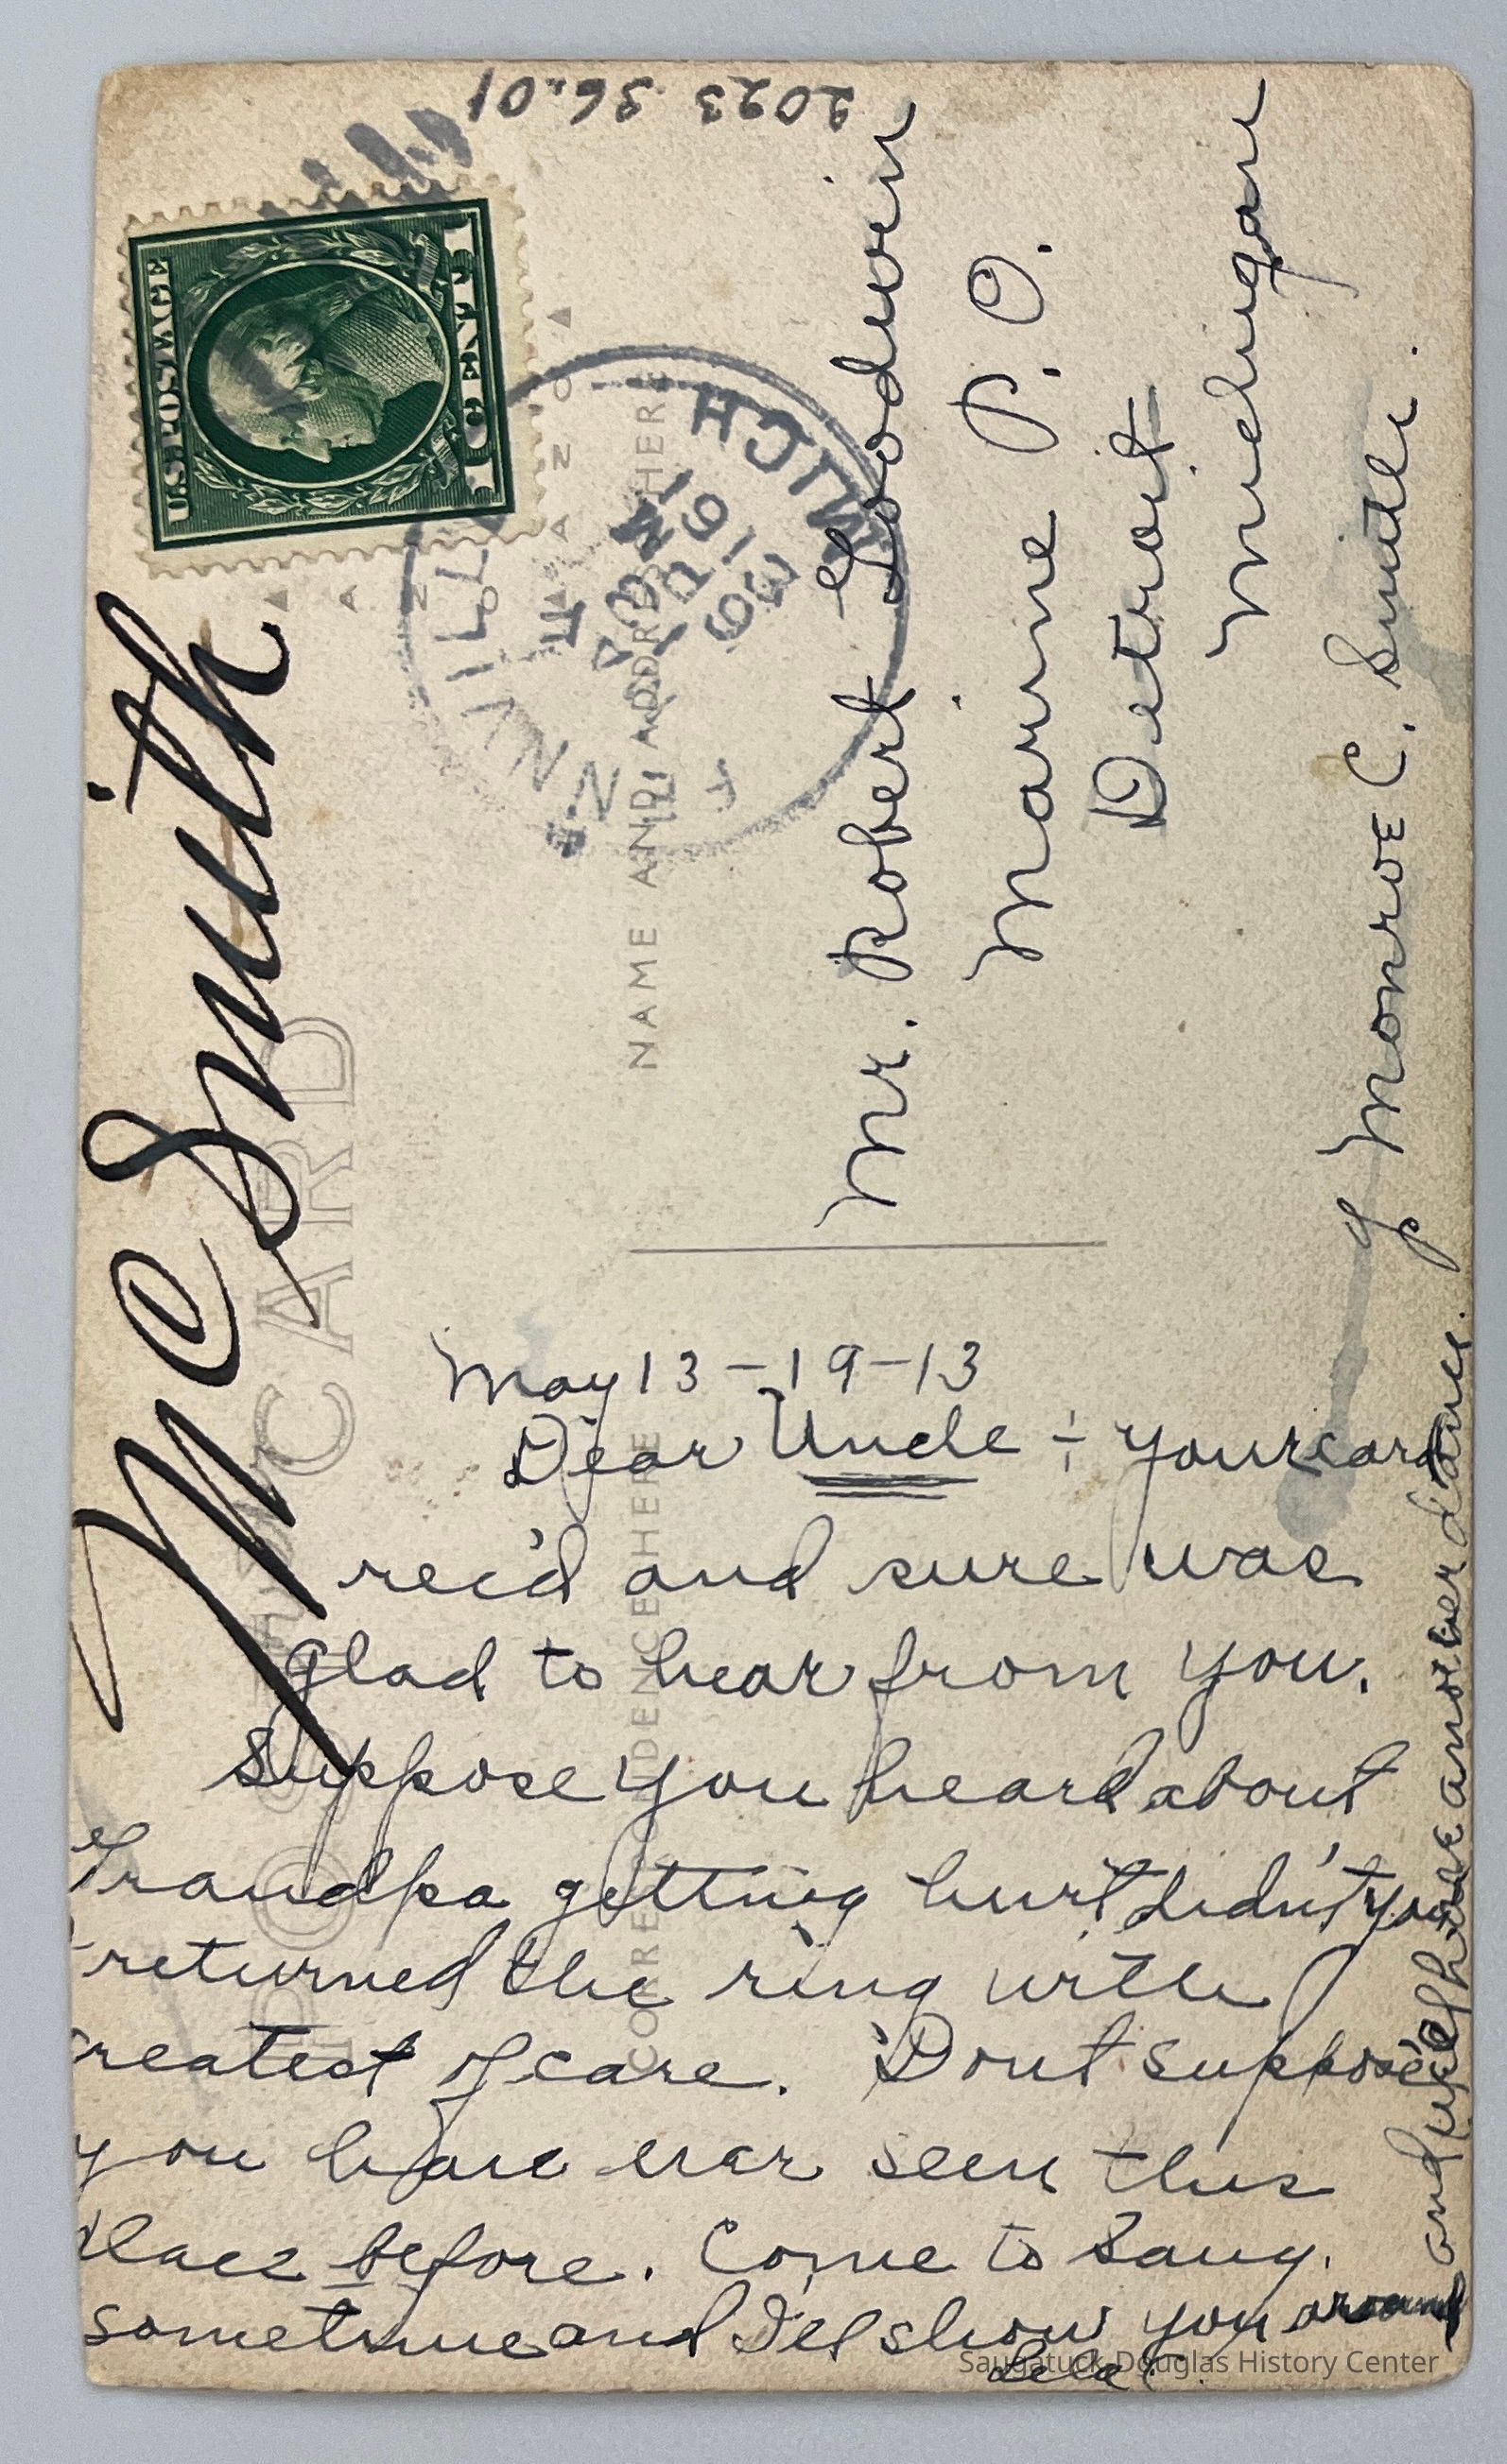 2023.36.01
U.S.POSTAGE
1 CENT 1
FENNVILLE
MAY 13
6 PM
1913
MICH
M C Smith
POST CARD
CORRESPONDENCE HERE
NAME AND ADDRESS HERE
Mr. Robert Goodwin
Marine P.O.
Detroit
Michigan
% Monroe C. Smith.
May 13-19-13
Dear Uncle ÷ your card
rec'd and sure was
glad to hear from you.
Suppose you heard about
Grandpa getting hurt didn't you
returned the ring with
greatest of care. Dont suppose
you have ever seen this
Place before. Come to Saug.
sometime and I'll show you around
and we'll have another dance.
Lela
Saugatuck-Douglas History Center